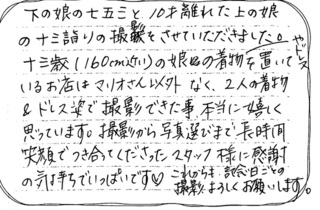 下の娘の七五三と10才離れた上の娘
の十三詣りの撮影をさせていただきました。
十三歳(160cm近い)の娘の着物やドレスを置いて
いるお店はマリオさん以外なく、2人の着物
&ドレス姿で撮影できた事、本当に嬉しく
思っています。撮影から写真選びまで長時間
笑顔でつき合ってくださったスタッフ様に感謝
の気持ちでいっぱいです♡
これからも、記念日ごとの
撮影、よろしくお願いします。